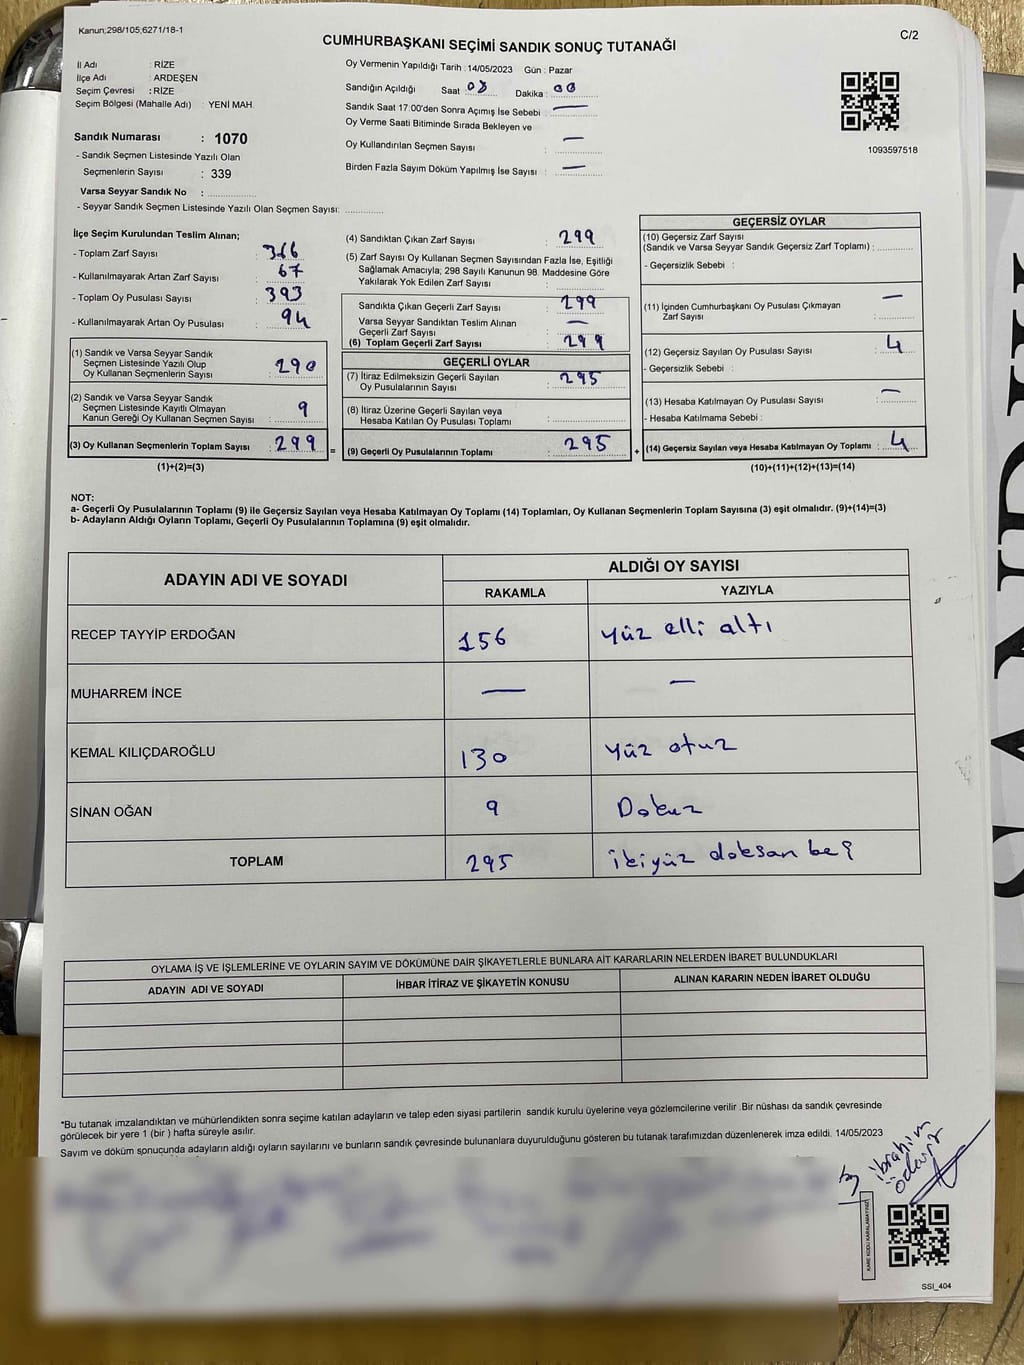 Kanun;298/105;6271/18-1
C/2
CUMHURBAŞKANI SEÇİMİ SANDIK SONUÇ TUTANAĞI
İl Adı : RİZE
İlçe Adı : ARDEŞEN
Seçim Çevresi : RİZE
Seçim Bölgesi (Mahalle Adı) : YENİ MAH.
Sandık Numarası : 1070
- Sandık Seçmen Listesinde Yazılı Olan
Seçmenlerin Sayısı : 339
Varsa Seyyar Sandık No :
- Seyyar Sandık Seçmen Listesinde Yazılı Olan Seçmen Sayısı:
Oy Vermenin Yapıldığı Tarih : 14/05/2023 Gün : Pazar
Sandığın Açıldığı Saat : 08 Dakika : 00
Sandık Saat 17:00'den Sonra Açımış İse Sebebi : —
Oy Verme Saati Bitiminde Sırada Bekleyen ve
Oy Kullandırılan Seçmen Sayısı : —
Birden Fazla Sayım Döküm Yapılmış İse Sayısı : —
1093597518
İlçe Seçim Kurulundan Teslim Alınan;
- Toplam Zarf Sayısı : 366
- Kullanılmayarak Artan Zarf Sayısı : 67
- Toplam Oy Pusulası Sayısı : 393
- Kullanılmayarak Artan Oy Pusulası : 94
(1) Sandık ve Varsa Seyyar Sandık
Seçmen Listesinde Yazılı Olup
Oy Kullanan Seçmenlerin Sayısı : 290
(2) Sandık ve Varsa Seyyar Sandık
Seçmen Listesinde Kayıtlı Olmayan
Kanun Gereği Oy Kullanan Seçmen Sayısı : 9
(3) Oy Kullanan Seçmenlerin Toplam Sayısı : 299
(1)+(2)=(3)
(4) Sandıktan Çıkan Zarf Sayısı : 299
(5) Zarf Sayısı Oy Kullanan Seçmen Sayısından Fazla İse, Eşitliği
Sağlamak Amacıyla; 298 Sayılı Kanunun 98. Maddesine Göre
Yakılarak Yok Edilen Zarf Sayısı :
Sandıkta Çıkan Geçerli Zarf Sayısı : 299
Varsa Seyyar Sandıktan Teslim Alınan
Geçerli Zarf Sayısı : —
(6) Toplam Geçerli Zarf Sayısı : 299
GEÇERLİ OYLAR
(7) İtiraz Edilmeksizin Geçerli Sayılan
Oy Pusulalarının Sayısı : 295
(8) İtiraz Üzerine Geçerli Sayılan veya
Hesaba Katılan Oy Pusulası Toplamı :
= (9) Geçerli Oy Pusulalarının Toplamı : 295
GEÇERSİZ OYLAR
(10) Geçersiz Zarf Sayısı
(Sandık ve Varsa Seyyar Sandık Geçersiz Zarf Toplamı) :
- Geçersizlik Sebebi :
(11) İçinden Cumhurbaşkanı Oy Pusulası Çıkmayan
Zarf Sayısı : —
(12) Geçersiz Sayılan Oy Pusulası Sayısı : 4
- Geçersizlik Sebebi :
(13) Hesaba Katılmayan Oy Pusulası Sayısı : —
- Hesaba Katılmama Sebebi :
+ (14) Geçersiz Sayılan veya Hesaba Katılmayan Oy Toplamı : 4
(10)+(11)+(12)+(13)=(14)
NOT:
a- Geçerli Oy Pusulalarının Toplamı (9) ile Geçersiz Sayılan veya Hesaba Katılmayan Oy Toplamı (14) Toplamları, Oy Kullanan Seçmenlerin Toplam Sayısına (3) eşit olmalıdır. (9)+(14)=(3)
b- Adayların Aldığı Oyların Toplamı, Geçerli Oy Pusulalarının Toplamına (9) eşit olmalıdır.
ADAYIN ADI VE SOYADI
ALDIĞI OY SAYISI
RAKAMLA YAZIYLA
RECEP TAYYİP ERDOĞAN 156 yüz elli altı
MUHARREM İNCE — —
KEMAL KILIÇDAROĞLU 130 yüz otuz
SİNAN OĞAN 9 Dokuz
TOPLAM 295 ikiyüz doksan beş
OYLAMA İŞ VE İŞLEMLERİNE VE OYLARIN SAYIM VE DÖKÜMÜNE DAİR ŞİKAYETLERLE BUNLARA AİT KARARLARIN NELERDEN İBARET BULUNDUKLARI
ADAYIN ADI VE SOYADI İHBAR İTİRAZ VE ŞİKAYETİN KONUSU ALINAN KARARIN NEDEN İBARET OLDUĞU
*Bu tutanak imzalandıktan ve mühürlendikten sonra seçime katılan adayların ve talep eden siyasi partilerin sandık kurulu üyelerine veya gözlemcilerine verilir .Bir nüshası da sandık çevresinde
görülecek bir yere 1 (bir ) hafta süreyle asılır.
Sayım ve döküm sonuçunda adayların aldığı oyların sayılarını ve bunların sandık çevresinde bulunanlara duyurulduğunu gösteren bu tutanak tarafımızdan düzenlenerek imza edildi. 14/05/2023
İbrahim
KARE KODU KARALAMAYINIZ
SSI_404